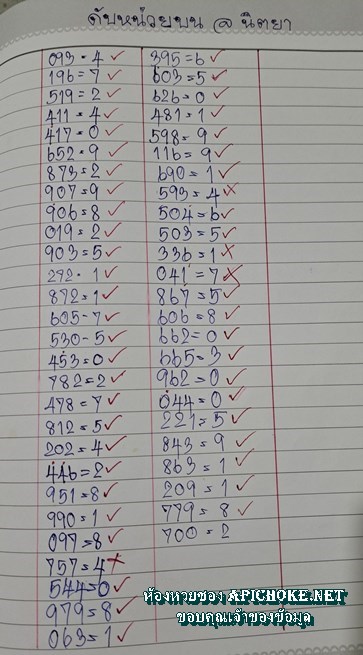 ดับหน่วยบน @ นิตยา
093 = 4 ✓
196 = 7 ✓
519 = 2 ✓
411 = 4 ✓
417 = 0 ✓
652 = 9 ✓
873 = 2 ✓
907 = 9 ✓
906 = 8 ✓
019 = 2 ✓
903 = 5 ✓
292 = 1 ✓
872 = 1 ✓
605 - 7 ✓
530 - 5 ✓
453 = 0 ✓
782 = 2 ✓
478 = 7 ✓
812 = 5 ✓
202 = 4 ✓
446 = 2 ✓
951 = 8 ✓
990 = 1 ✓
097 = 8 ✓
757 = 4 ✗
544 = 0 ✓
979 = 8 ✓
063 = 1 ✓
395 = 6 ✓
603 = 5 ✓
626 = 0 ✓
481 = 1 ✓
598 = 9 ✓
116 = 9 ✓
690 = 1 ✓
593 = 4 ✗
504 = 6 ✓
503 = 5 ✓
336 = 1 ✗
041 = 7 ✗
867 = 5 ✓
606 = 8 ✓
662 = 0 ✓
665 = 3 ✓
962 = 0 ✓
044 = 0 ✓
221 = 5 ✓
843 = 9 ✓
863 = 1 ✓
209 = 1 ✓
779 = 8 ✓
700 = 2
ห้องหวยซอง APICHOKE.NET
ขอบคุณเจ้าของข้อมูล